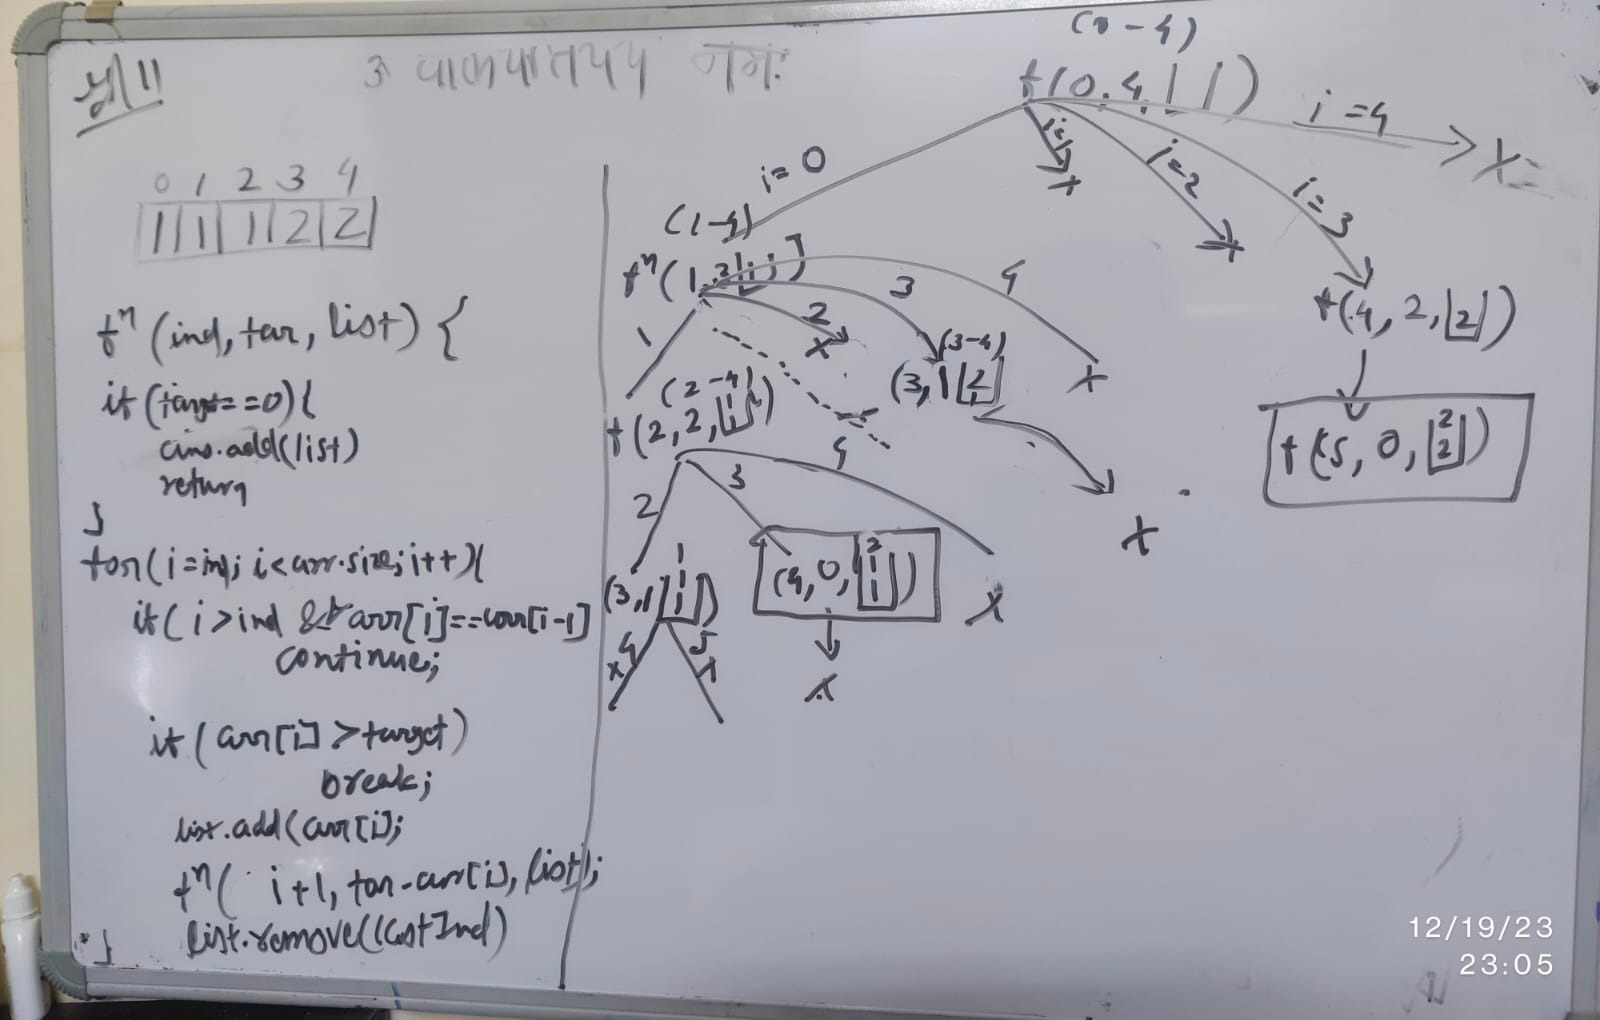 श्री ॥
0 1 2 3 4
1 1 1 2 2
fⁿ (ind, tar, list) {
if (target==0){
ans.add(list)
return
}
for(i=ind; i<arr.size; i++){
if( i>ind && arr[i]==arr[i-1]
continue;
if( arr[i] >target)
break;
list.add(arr[i];
fⁿ( i+1, tar-arr[i], list);
list.remove(lastInd)
}
(0-4)
f(0,4,| |)
i=0
i=1
X
i=2
X
i=3
i=4
X
(1-4)
1
2
X
3
4
X
(3-4)
(3,1
X
f(4, 2, |2|)
f(5, 0, |2 2|)
(2-4)
f(2,2,|1 1|)
2
3
4
X
(3,1|1 1 1|)
4
X
5
X
(4,0,|2 1 1|)
X
12/19/23
23:05